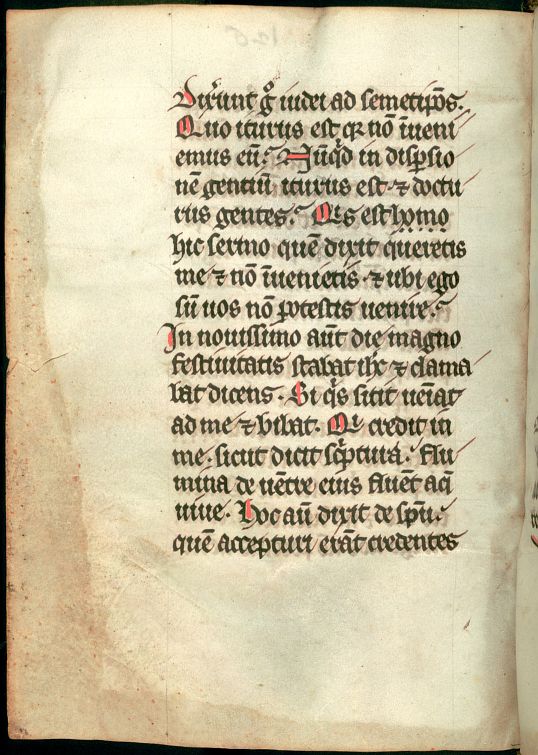 Dixerunt gͦ iudei ad semetip̄os.
Quo iturus est qꝛ nō īueni
emus eū? Nūqͥd in disp̄sio
nē gentiū iturus est ⁊ doctu
rus gentes? Qͥs est homo
hic sermo quē dixit queretis
me ⁊ nō īuenietis ⁊ ubi ego
sū uos nō potestis uenire?
In nouissimo aūt die magno
festiuitatis stabat ihc̄ ⁊ clama
bat dicens. Si qͥs sitit ueīat
ad me ⁊ bibat. Qͥ credit in
me. sicut dicit scͥptura. flu
mina de uētre eius fluēt aq̄
uiue. Hoc aū dixit de sp̄u.
quē accepturi erāt credentes